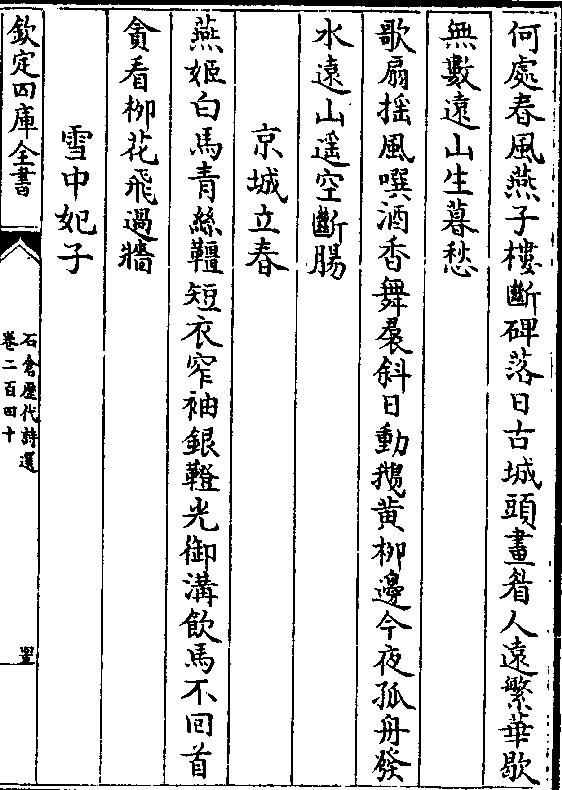 何處春風燕子樓斷碑落日古城頭畫眉人遠繁華歇
無數遠山生暮愁
歌扇揺風噀酒香舞裙斜日動鵝黄栁邊今夜孤舟發
水遠山遥空斷腸
京城立春
燕姬白馬青絲韁短衣窄袖銀鐙光御溝飲馬不回首
貪看栁花飛過牆
雪中妃子
欽定四庫全書
石倉歴代詩選
卷二百四十